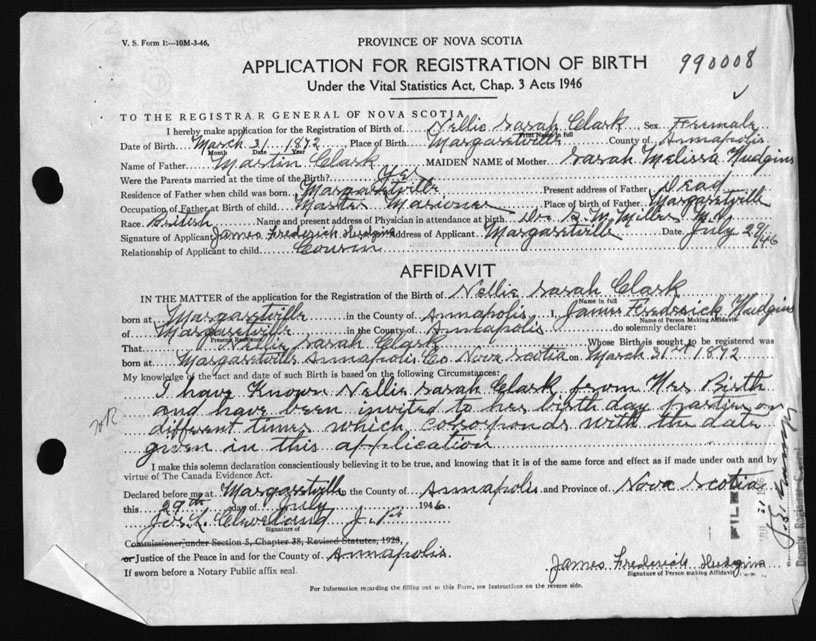 V. S. Form 1:—10M-3-46,
PROVINCE OF NOVA SCOTIA
APPLICATION FOR REGISTRATION OF BIRTH
990008
Under the Vital Statistics Act, Chap. 3 Acts 1946
TO THE REGISTRAR GENERAL OF NOVA SCOTIA
I hereby make application for the Registration of Birth of Nellie Sarah Clark, Sex Freemale
Print Name in full
Date of Birth March 31 1872 Place of Birth Margaretville County of Annapolis
Month Date Year
Name of Father Martin Clark MAIDEN NAME of Mother Sarah Melissa Hudgins
Were the Parents married at time of the Birth? Yes
Residence of Father when child was born Margaretville Present address of Father Dead
Occupation of Father at Birth of child Master Marioner Place of birth of Father Margaretville
Race British Name and present address of Physician in attendance at birth Dr. B. W. Miller M.D.
Signature of Applicant James Frederick Hudgins Address of Applicant Margaretville Date July 29/46
Relationship of Applicant to child Cousin
AFFIDAVIT
IN THE MATTER of the application for the Registration of the Birth of Nellie Sarah Clark
Name in full
born at Margaretville in the County of Annapolis I, James Frederick Hudgins
Name of Person Making Affidavit
of Margaretville in the County of Annapolis do solemnly declare:
Present Residence
That Nellie Sarah Clark Whose Birth is sought to be registered was
born at Margaretville Annapolis Co Nova Scotia on March 31st 1872
My knowledge of the fact and date of such Birth is based on the following Circumstances:
I have Known Nellie Sarah Clark from Hers Birth
and have been invited to her birth day parties on
different times which corosponds with the date
given in this application
I make this solemn declaration conscientiously believing it to be true, and knowing that it is of the same force and effect as if made under oath and by
virtue of The Canada Evidence Act.
Declared before me at Margaretville the County of Annapolis and Province of Nova Scotia
this 29th day of July 1946
Jos. L. Cleveland J.P.
Signature of
Commissioner under Section 5, Chapter 38, Revised Statutes, 1923,
or Justice of the Peace in and for the County of Annapolis.
James Frederick Hudgins
If sworn before a Notary Public affix seal.
Signature of Person making Affidavit
For Information regarding the filling out of this Form, see Instructions on the reverse side.
FILED
Deputy Registrar General